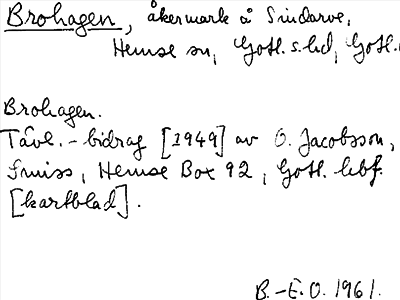 Brohagen, åkermark å Sindarve,
Hemse sn, Gotl. s. hd, Gotl.
Brohagen.
Tävl.-bidrag [1949] av O. Jacobsson,
Smiss, Hemse Box 92, Gotl. lbf.
[kartblad].
B.-E.O. 1961.